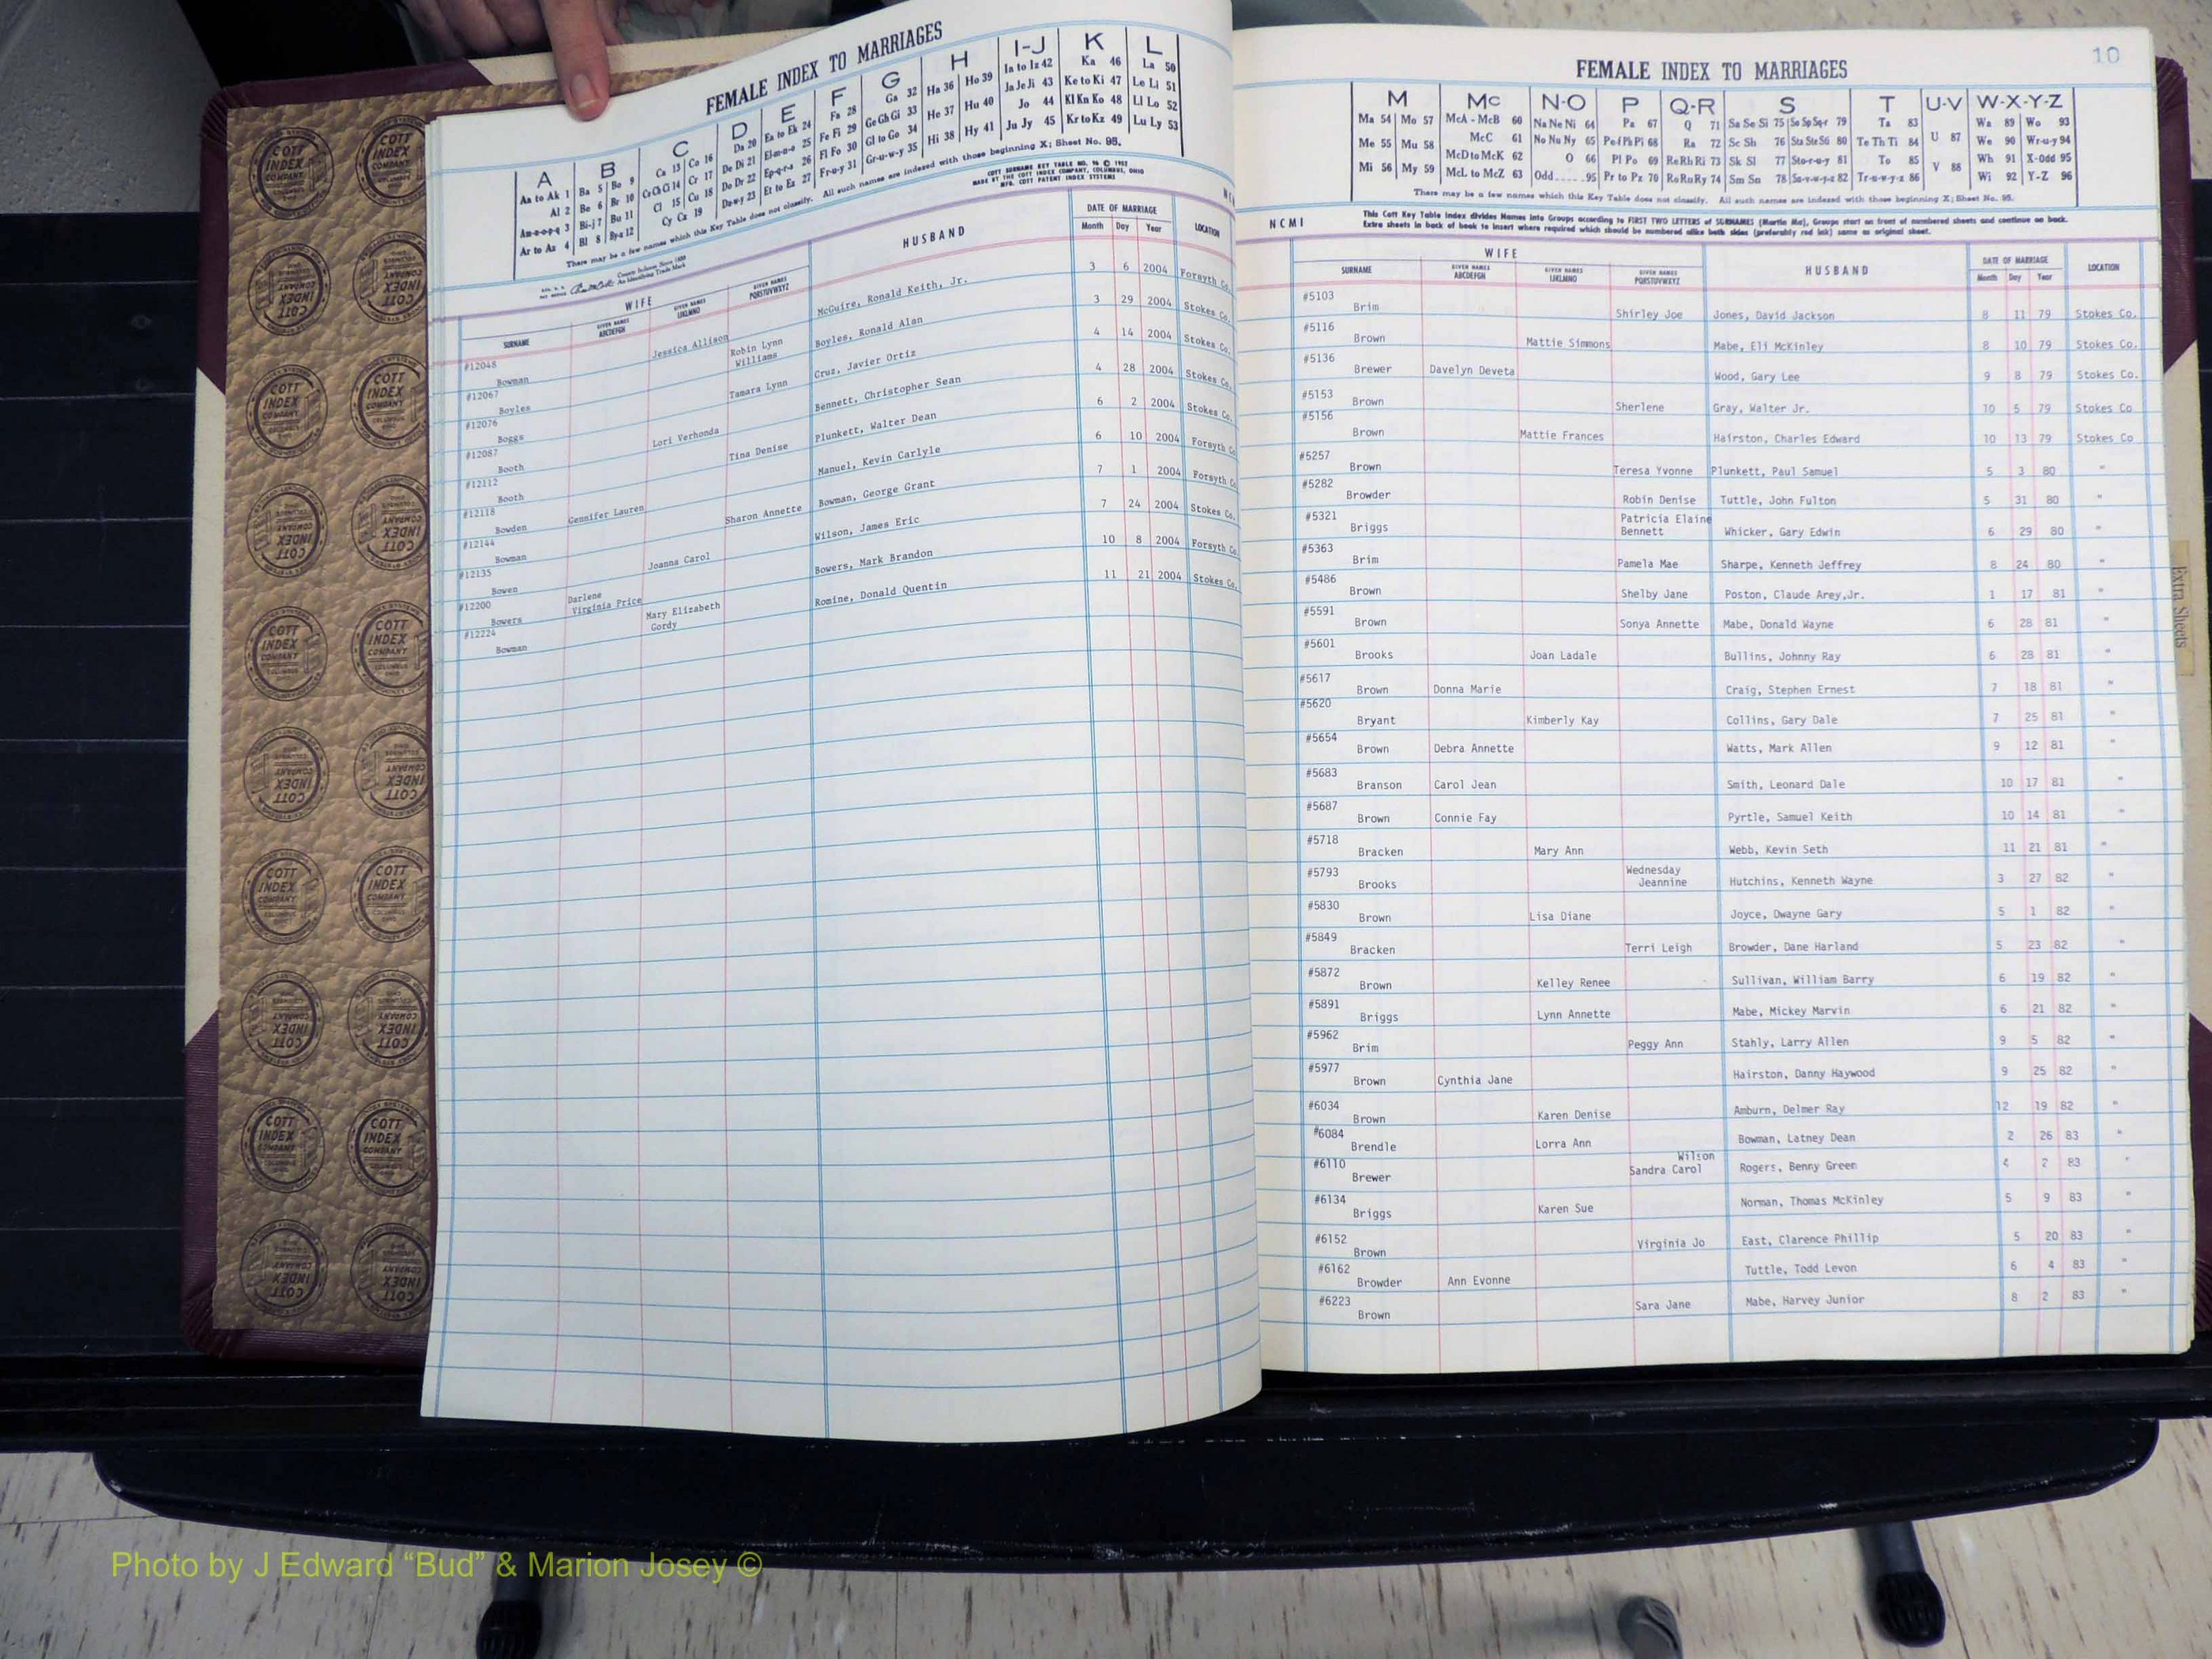 FEMALE INDEX TO MARRIAGES
A B C D E F G H I-J K L
Aa to Ak 1 Ba 5 Bo 9 Ca 13 Co 16 Da 20 Ea to Ek 24 Fa 28 Ga 32 Ha 36 Ho 39 Ia to Iz 42 Ka 46 La 50
Al 2 Be 6 Br 10 Ce Ch Ci 14 Cr 17 De Di 21 El-m-n-o 25 Fe Fi 29 Ge Gh Gi 33 He 37 Hu 40 Ja Je Ji 43 Ke to Ki 47 Le Li 51
Am-n-o-p-q 3 Bi-j 7 Bu 11 Cl 15 Cu 18 Do Dr 22 Ep-q-r-s 26 Fl Fo 30 Gl to Go 34 Hi 38 Hy 41 Jo 44 Kl Kn Ko 48 Ll Lo 52
Ar to Az 4 Bl 8 By-z 12 Cy Cz 19 Du-w-y 23 Et to Ez 27 Fr-u-y 31 Gr-u-w-y 35 Ju Jy 45 Kr to Kz 49 Lu Ly 53
There may be a few names which this Key Table does not classify. All such names are indexed with those beginning X; Sheet No. 95.
COTT SURNAME KEY TABLE NO. 96 © 1952
MADE BY THE COTT INDEX COMPANY, COLUMBUS, OHIO
MFG. COTT PATENT INDEX SYSTEMS
County Indexes Since 1888
An Identifying Trade Mark
WIFE HUSBAND DATE OF MARRIAGE LOCATION
SURNAME GIVEN NAMES ABCDEFGH GIVEN NAMES IJKLMNO GIVEN NAMES PQRSTUVWXYZ Month Day Year
#12048 Bowman Jessica Allison McGuire, Ronald Keith, Jr. 3 6 2004 Forsyth Co.
#12067 Boyles Robin Lynn Williams Boyles, Ronald Alan 3 29 2004 Stokes Co.
#12076 Boggs Tamara Lynn Cruz, Javier Ortiz 4 14 2004 Stokes Co.
#12087 Booth Lori Verhonda Bennett, Christopher Sean 4 28 2004 Stokes Co.
#12112 Booth Tina Denise Plunkett, Walter Dean 6 2 2004 Stokes Co.
#12118 Bowden Gennifer Lauren Manuel, Kevin Carlyle 6 10 2004 Forsyth Co
#12144 Bowman Sharon Annette Bowman, George Grant 7 1 2004 Forsyth Co
#12135 Bowen Joanna Carol Wilson, James Eric 7 24 2004 Stokes Co.
#12200 Bowers Darlene Virginia Price Bowers, Mark Brandon 10 8 2004 Forsyth Co
#12224 Bowman Mary Elizabeth Gordy Romine, Donald Quentin 11 21 2004 Stokes Co.
10
FEMALE INDEX TO MARRIAGES
M Mc N-O P Q-R S T U-V W-X-Y-Z
Ma 54 Mo 57 McA - McB 60 Na Ne Ni 64 Pa 67 Q 71 Sa Se Si 75 So Sp Sq-r 79 Ta 83 U 87 Wa 89 Wo 93
Me 55 Mu 58 McC 61 No Nu Ny 65 Pe-f Ph Pi 68 Ra 72 Sc Sh 76 Sta Ste Sti 80 Te Th Ti 84 We 90 Wr-u-y 94
Mi 56 My 59 McD to McK 62 O 66 Pl Po 69 Re Rh Ri 73 Sk Sl 77 Sto-r-u-y 81 To 85 V 88 Wh 91 X-Odd 95
McL to McZ 63 Odd.....95 Pr to Pz 70 Ro Ru Ry 74 Sm Sn 78 Su-v-w-y-z 82 Tr-u-w-y-z 86 Wi 92 Y-Z 96
There may be a few names which this Key Table does not classify. All such names are indexed with those beginning X; Sheet No. 95.
NCMI This Cott Key Table Index divides Names into Groups according to FIRST TWO LETTERS of SURNAMES (Martin Ma), Groups start on front of numbered sheets and continue on back.
Extra sheets in back of book to insert where required which should be numbered alike both sides (preferably red ink) same as original sheet.
WIFE HUSBAND DATE OF MARRIAGE LOCATION
SURNAME GIVEN NAMES ABCDEFGH GIVEN NAMES IJKLMNO GIVEN NAMES PQRSTUVWXYZ Month Day Year
#5103 Brim Shirley Joe Jones, David Jackson 8 11 79 Stokes Co.
#5116 Brown Mattie Simmons Mabe, Eli McKinley 8 10 79 Stokes Co.
#5136 Brewer Davelyn Deveta Wood, Gary Lee 9 8 79 Stokes Co.
#5153 Brown Sherlene Gray, Walter Jr. 10 5 79 Stokes Co
#5156 Brown Mattie Frances Hairston, Charles Edward 10 13 79 Stokes Co
#5257 Brown Teresa Yvonne Plunkett, Paul Samuel 5 3 80 "
#5282 Browder Robin Denise Tuttle, John Fulton 5 31 80 "
#5321 Briggs Patricia Elaine Bennett Whicker, Gary Edwin 6 29 80 "
#5363 Brim Pamela Mae Sharpe, Kenneth Jeffrey 8 24 80 "
#5486 Brown Shelby Jane Poston, Claude Arey,Jr. 1 17 81 "
#5591 Brown Sonya Annette Mabe, Donald Wayne 6 28 81 "
#5601 Brooks Joan Ladale Bullins, Johnny Ray 6 28 81 "
#5617 Brown Donna Marie Craig, Stephen Ernest 7 18 81 "
#5620 Bryant Kimberly Kay Collins, Gary Dale 7 25 81 "
#5654 Brown Debra Annette Watts, Mark Allen 9 12 81 "
#5683 Branson Carol Jean Smith, Leonard Dale 10 17 81 "
#5687 Brown Connie Fay Pyrtle, Samuel Keith 10 14 81 "
#5718 Bracken Mary Ann Webb, Kevin Seth 11 21 81 "
#5793 Brooks Wednesday Jeannine Hutchins, Kenneth Wayne 3 27 82 "
#5830 Brown Lisa Diane Joyce, Dwayne Gary 5 1 82 "
#5849 Bracken Terri Leigh Browder, Dane Harland 5 23 82 "
#5872 Brown Kelley Renee Sullivan, William Barry 6 19 82 "
#5891 Briggs Lynn Annette Mabe, Mickey Marvin 6 21 82 "
#5962 Brim Peggy Ann Stahly, Larry Allen 9 5 82 "
#5977 Brown Cynthia Jane Hairston, Danny Haywood 9 25 82 "
#6034 Brown Karen Denise Amburn, Delmer Ray 12 19 82 "
#6084 Brendle Lorra Ann Bowman, Latney Dean 2 26 83 "
#6110 Brewer Wilson Sandra Carol Rogers, Benny Green 4 2 83 "
#6134 Briggs Karen Sue Norman, Thomas McKinley 5 9 83 "
#6152 Brown Virginia Jo East, Clarence Phillip 5 20 83 "
#6162 Browder Ann Evonne Tuttle, Todd Levon 6 4 83 "
#6223 Brown Sara Jane Mabe, Harvey Junior 8 2 83 "
Extra Sheets
COTT INDEX COMPANY COLUMBUS OHIO
Photo by J Edward “Bud” & Marion Josey ©